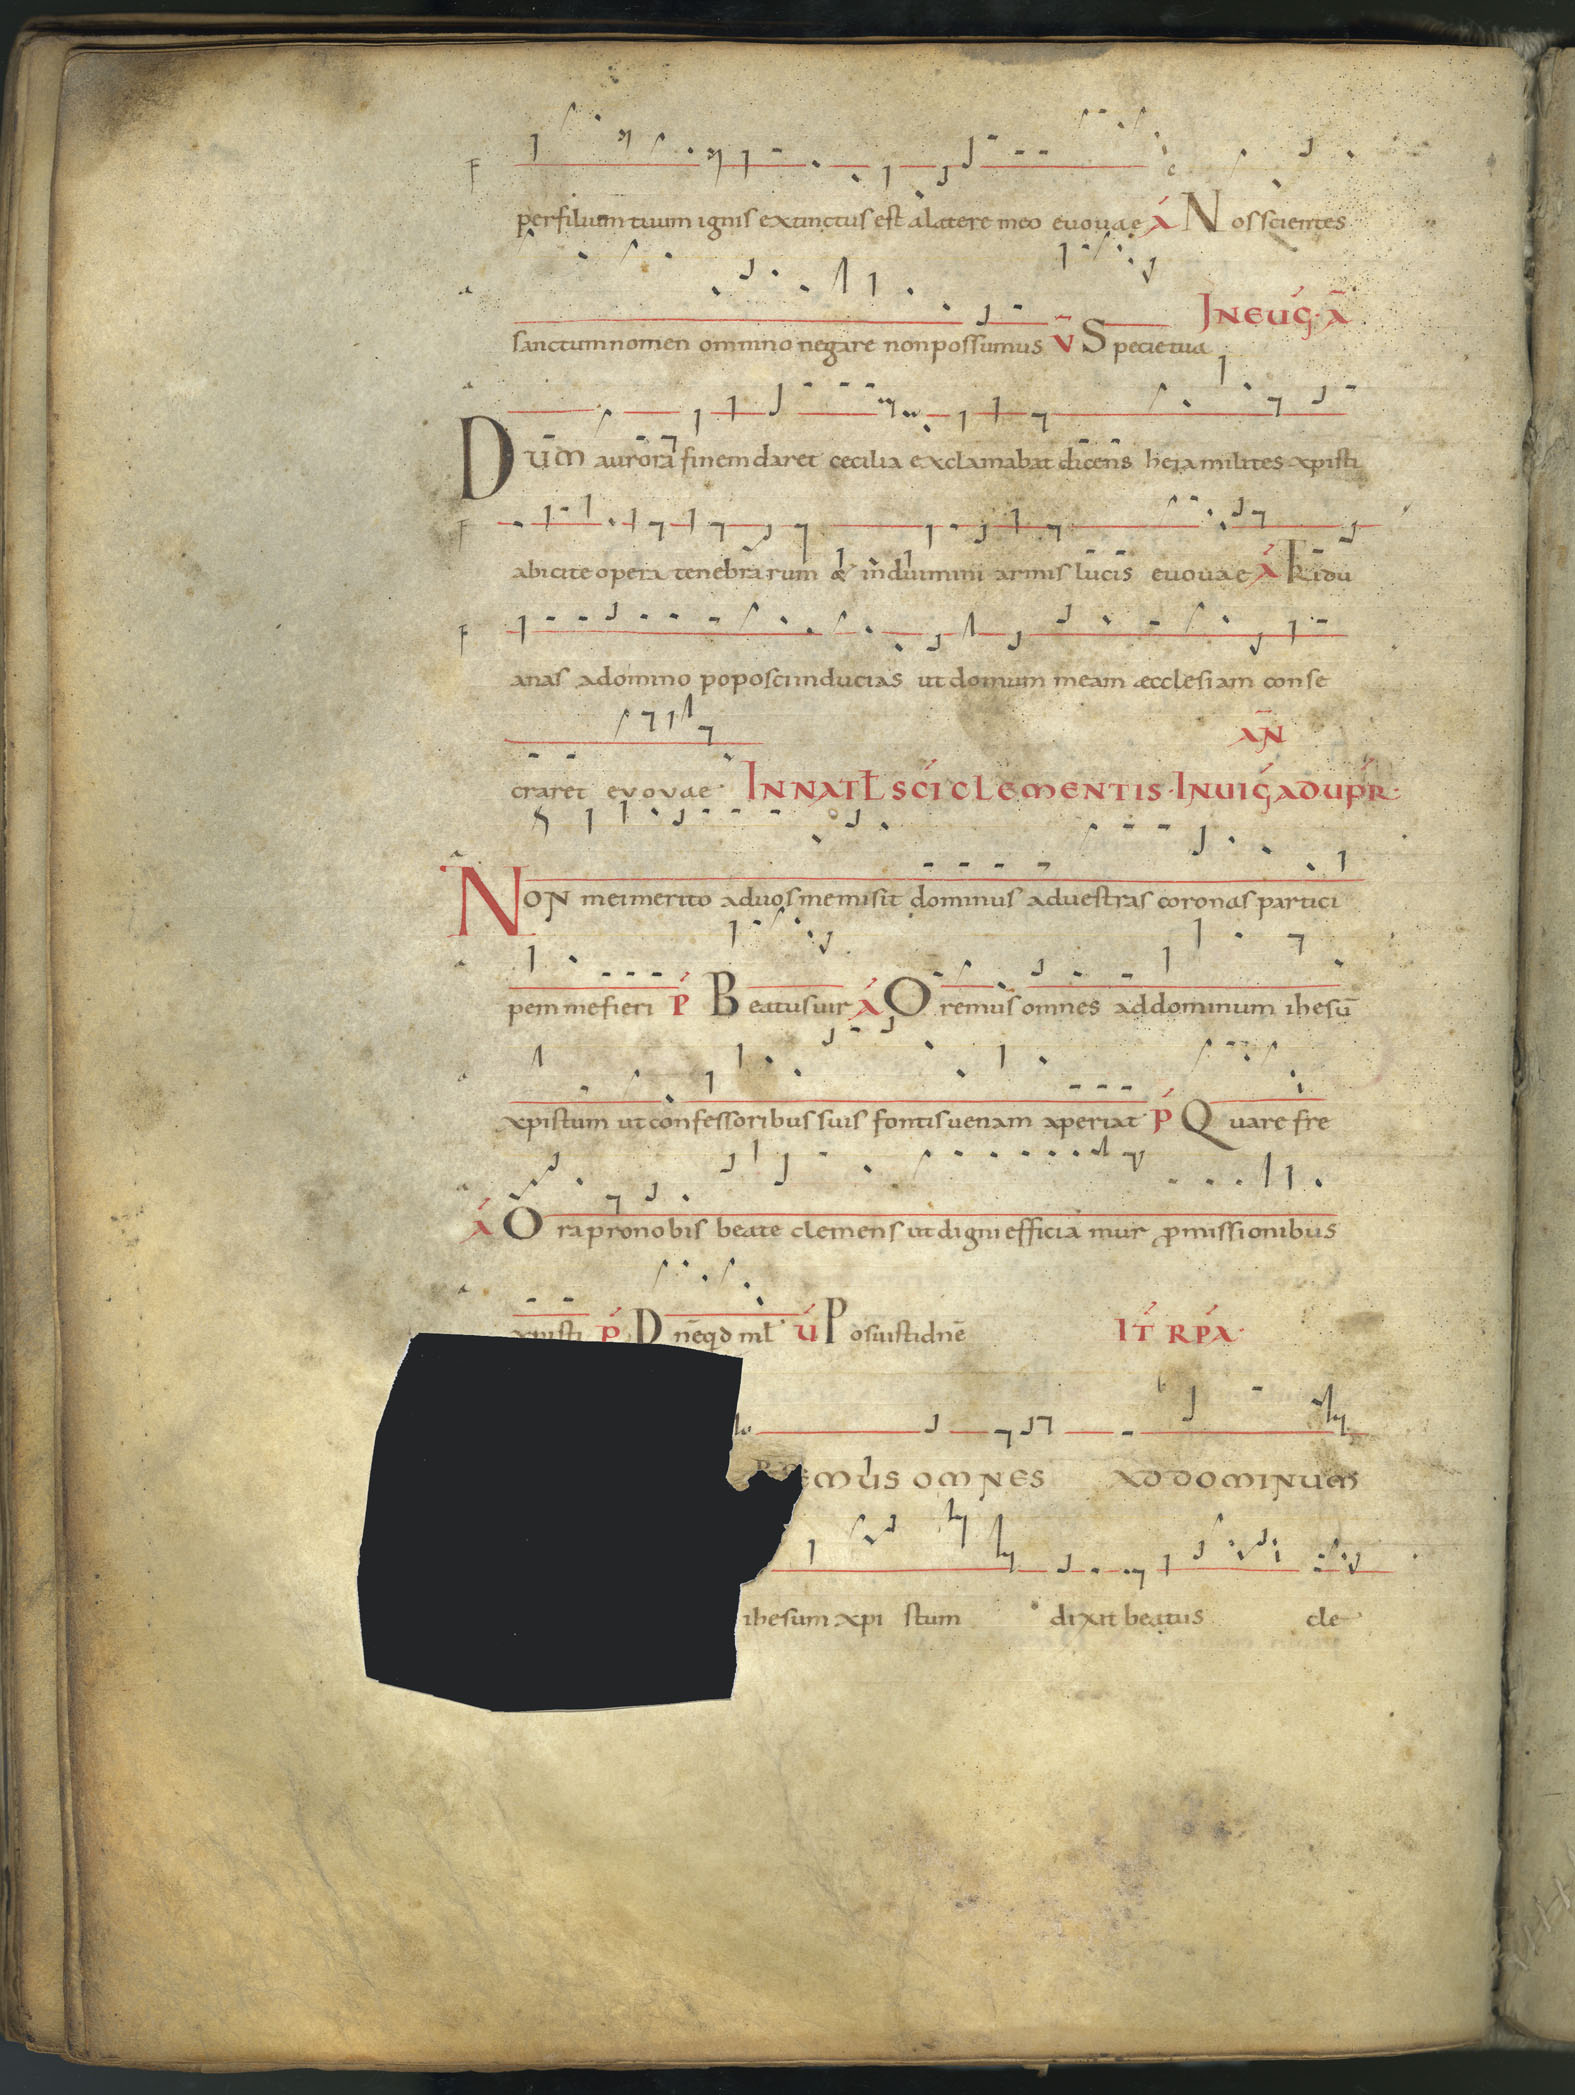 per filium tuum ignis extinctus est a latere meo euouae A Nos scientes
sanctum nomen omnino negare non possumus V Specie tua IN EUG. A
Dum aurora finem daret cecilia exclamabat dicens heia milites xpisti
abicite opera tenebrarum & induimini armis lucis euouae A Tridu
anas a domino poposci inducias ut domum meam æcclesiam conse
craret euouae IN NATL SCI CLEMENTIS. INUIG AD UPR. AN
Non meimerito ad uos me misit dominus ad uestras coronas partici
pem me fieri P Beatus uir A Oremus omnes ad dominum ihesū
xpistum ut confessoribus suis fontis uenam aperiat P Quare fre
A Ora pro nobis beate clemens ut digni efficiamur promissionibus
xpisti P Dnē qd ml U Posuisti dnē IT RPA.
REMUS OMNES AD DOMINUM
ihesum xpistum dixit beatus cle